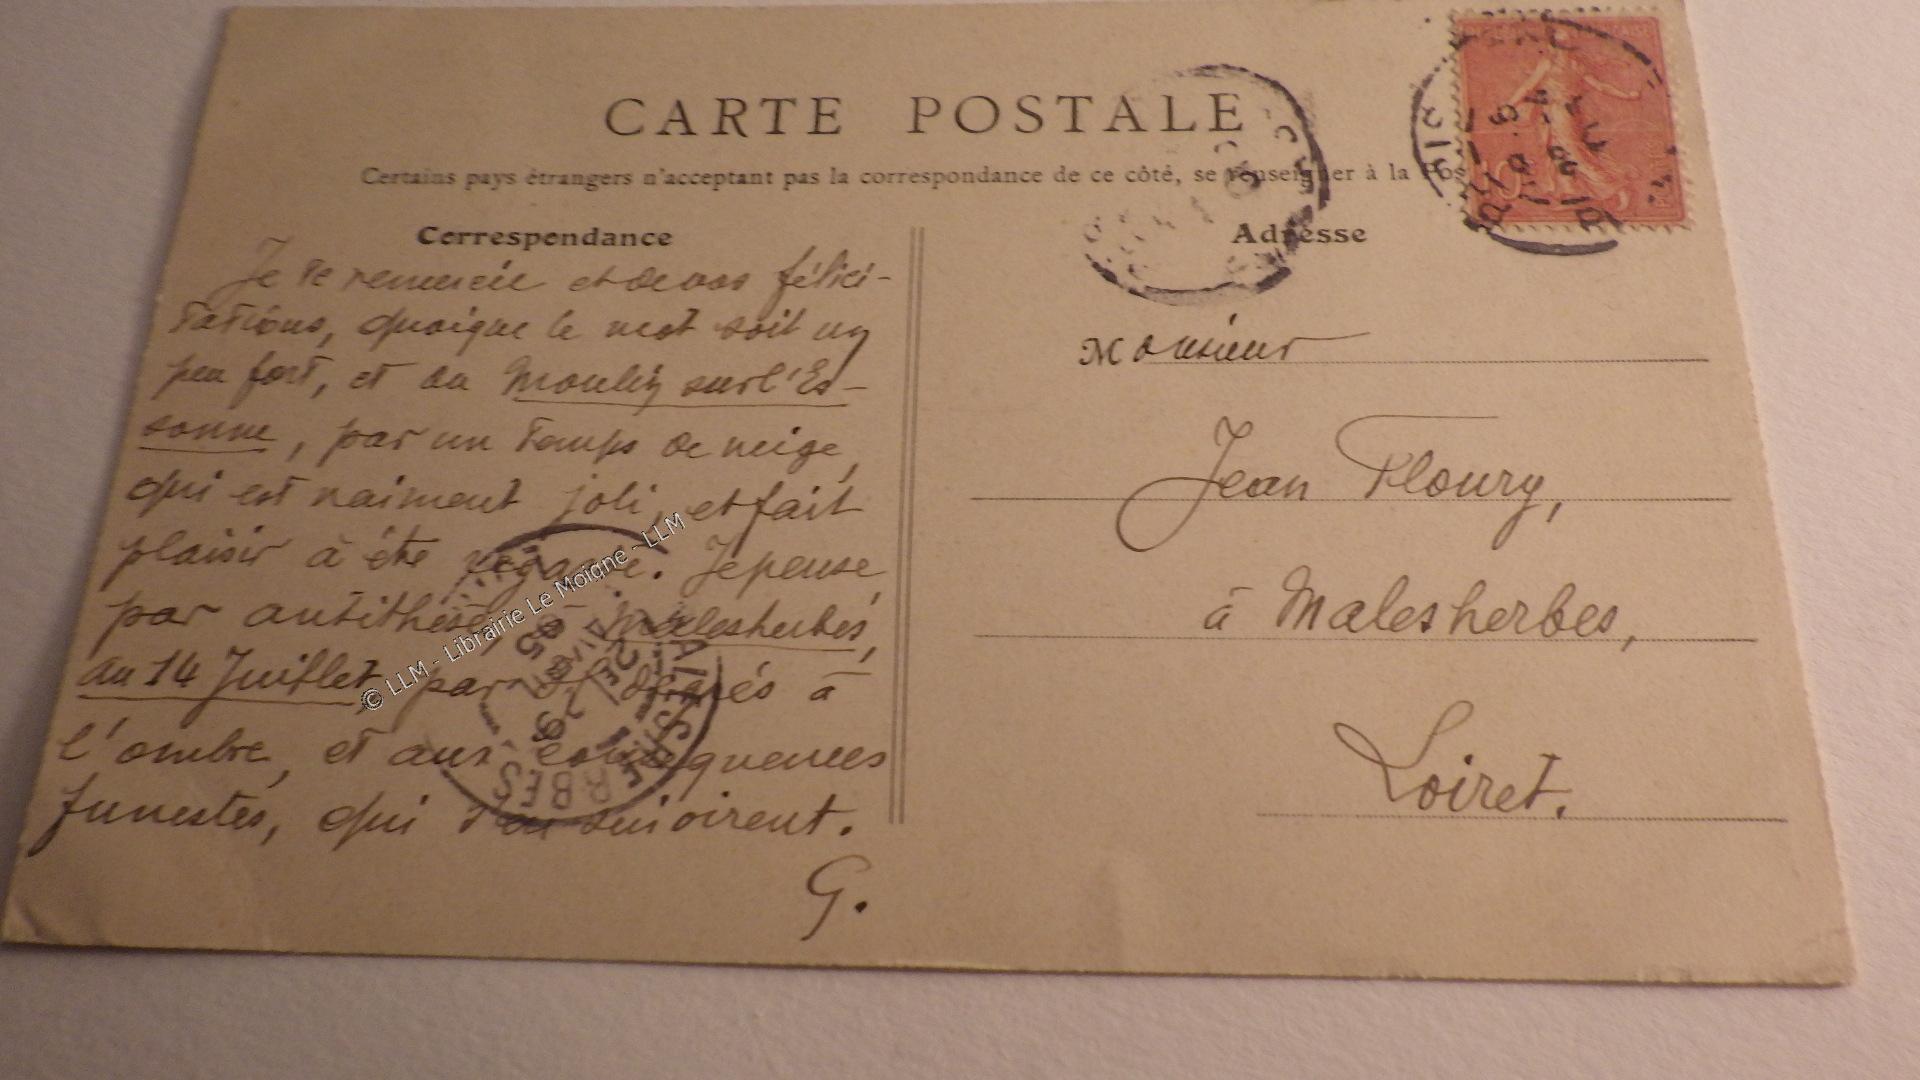 CARTE POSTALE
Certains pays étrangers n'acceptant pas la correspondance de ce côté, se renseigner à la Pos
Correspondance
Je te remercie et de vos félici-
tations, quoique le mot soit un
peu fort, et du Moulin sur l'Es-
sonne, par un temps de neige,
qui est vraiment joli, et fait
plaisir à être regardé. Je pense
par antithèse, à Malesherbes,
au 14 Juillet, par degrés à
l'ombre, et aux conséquences
funestes, qui s'en suivirent.
G.
Adresse
Monsieur
Jean Floury,
à Malesherbes,
Loiret.
MALESHERBES
© LLM - Librairie Le Moigne - LLM